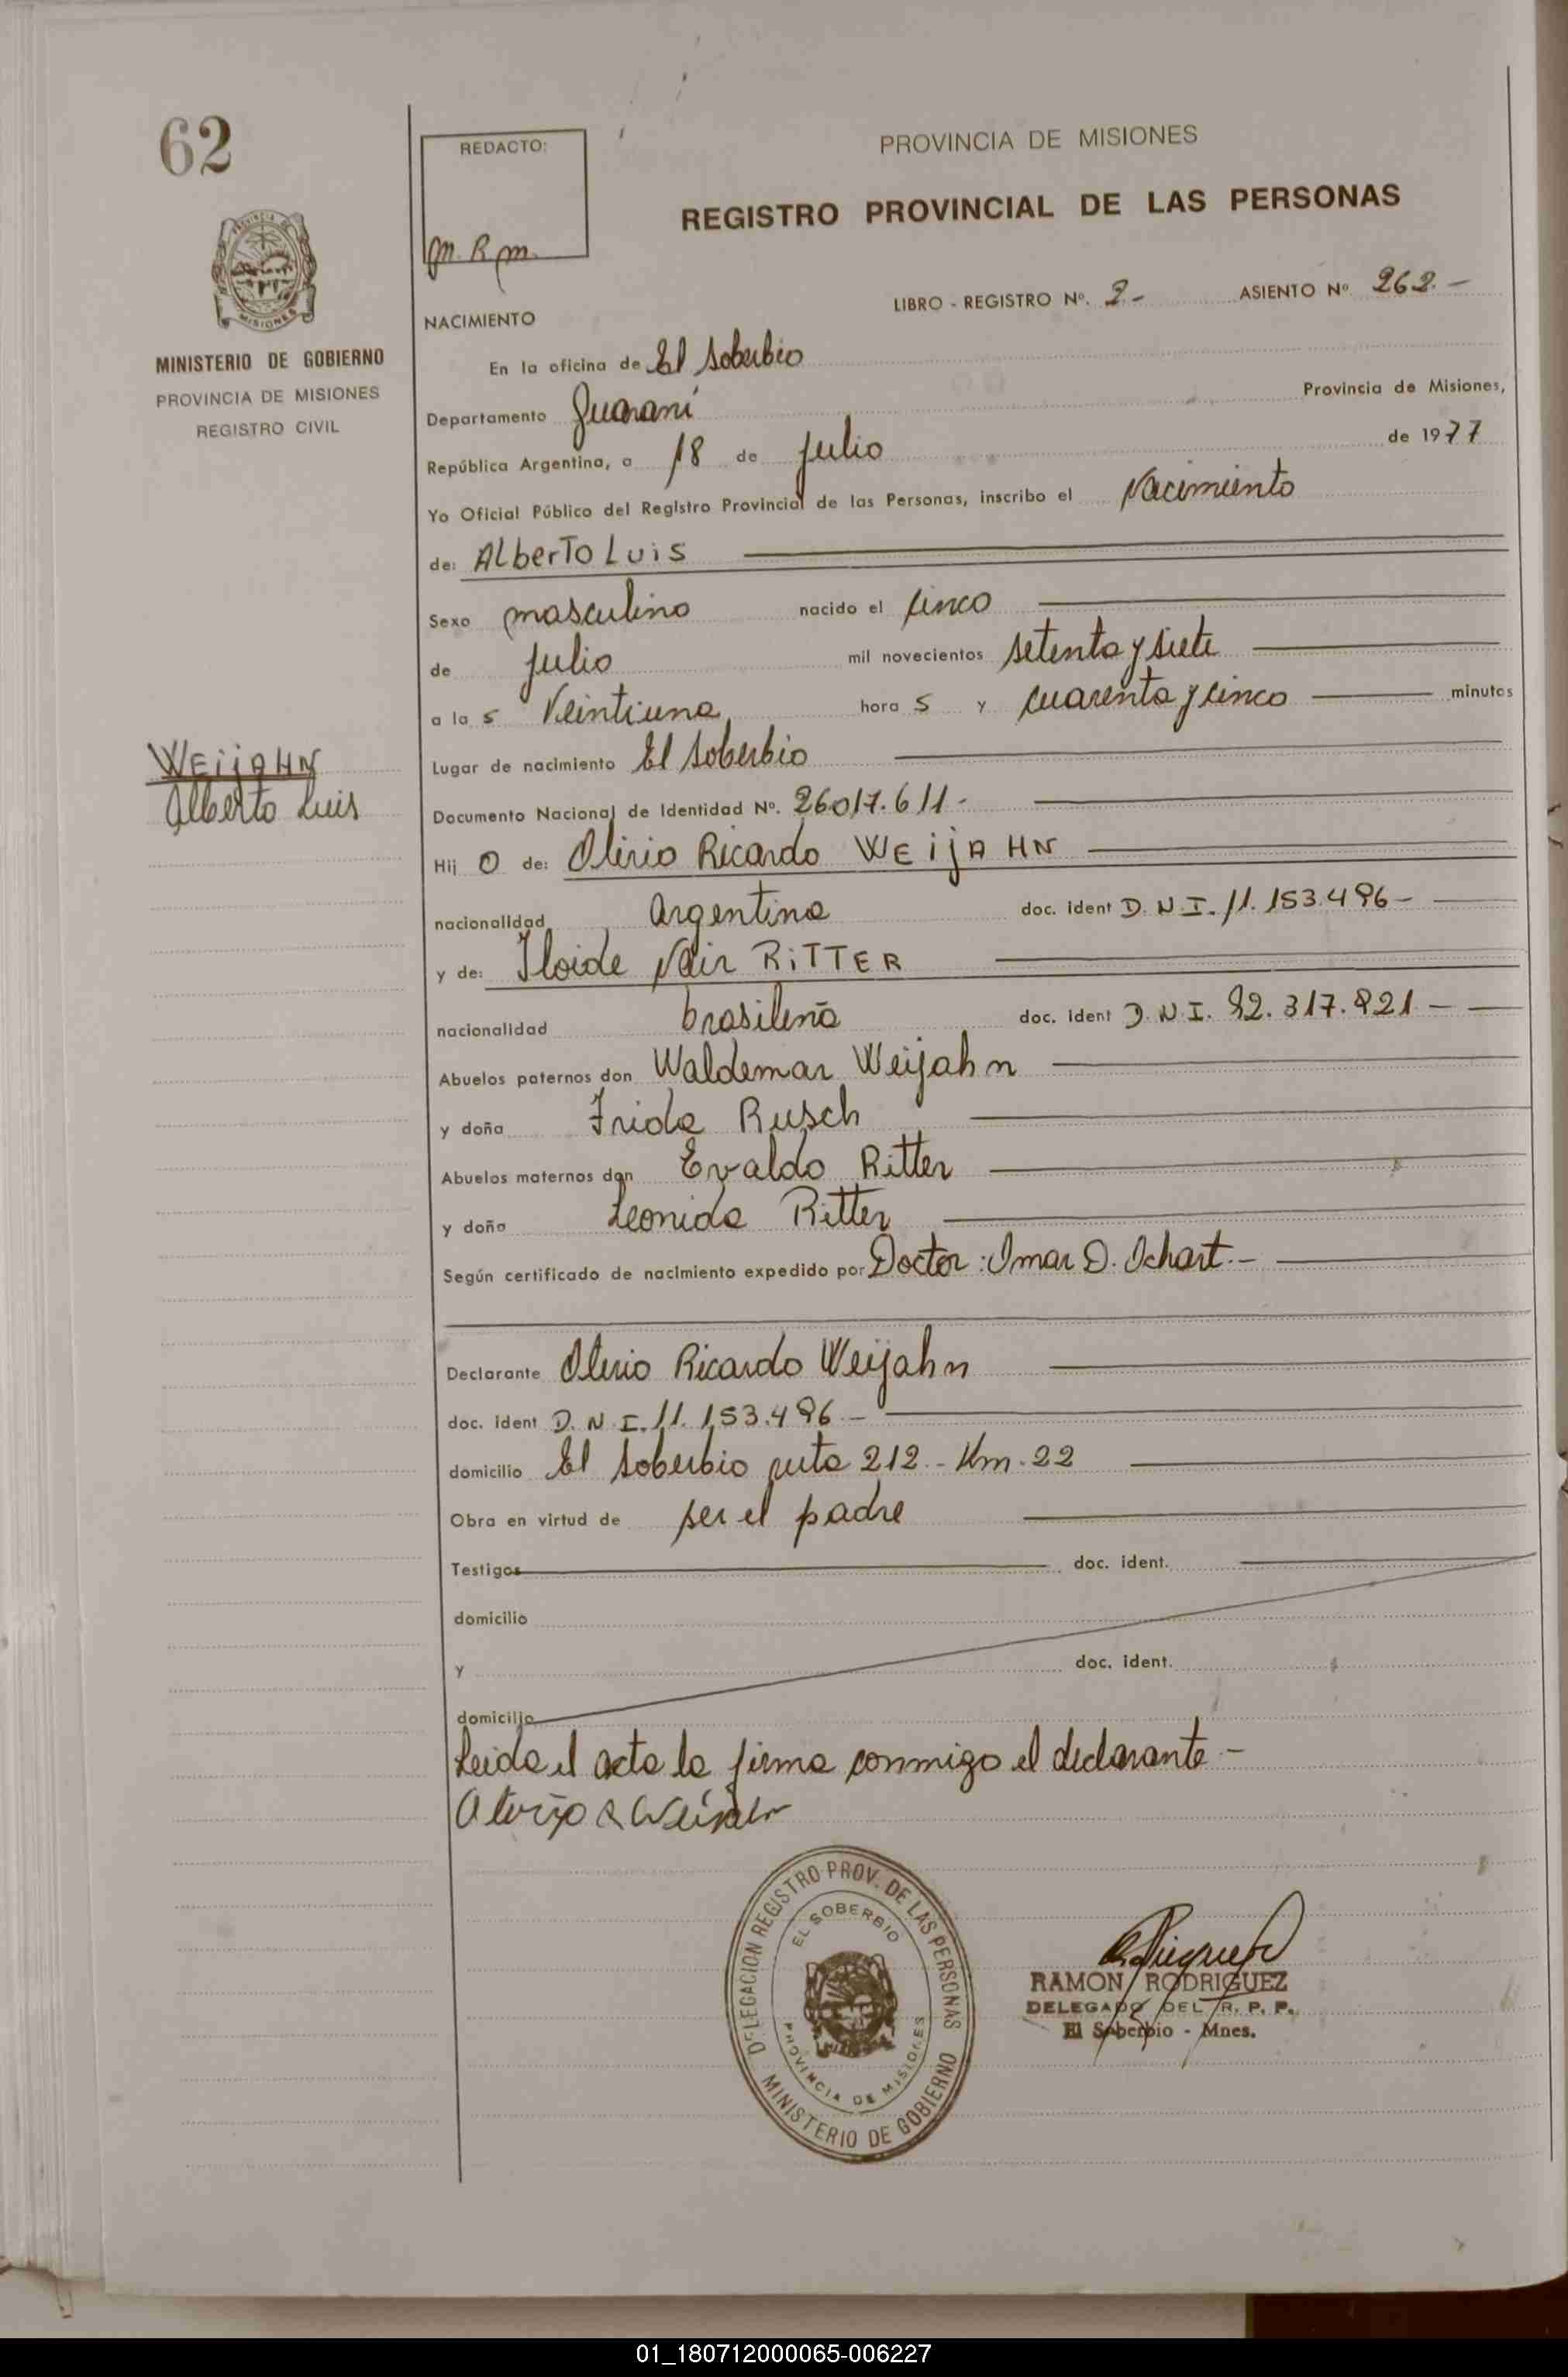 62
REDACTO:
M. R. M.
PROVINCIA DE MISIONES
REGISTRO PROVINCIAL DE LAS PERSONAS
MISIONES
MINISTERIO DE GOBIERNO
PROVINCIA DE MISIONES
REGISTRO CIVIL
LIBRO - REGISTRO Nº. 2 - ASIENTO Nº 262. -
NACIMIENTO
En la oficina de El Soberbio
Departamento Guaraní Provincia de Misiones,
República Argentina, a 18 de Julio de 1977
Yo Oficial Público del Registro Provincial de las Personas, inscribo el Nacimiento
de: ALberTo Luis
Sexo masculino nacido el cinco
de Julio mil novecientos setenta y siete
a la s Veintiuna hora s y cuarenta y cinco minutos
WEijAHN
Alberto Luis
Lugar de nacimiento El Soberbio
Documento Nacional de Identidad Nº. 26.017.611 -
Hij o de: Olirio Ricardo WEijAHN
nacionalidad argentina doc. ident D. N. I. 11.153.496 -
y de: Iloide Nair RiTTER
nacionalidad brasileña doc. ident D. N. I. 92.317.821 -
Abuelos paternos don Waldemar Weijahn
y doña Frida Rusch
Abuelos maternos don Evaldo Ritter
y doña Leonida Ritter
Según certificado de nacimiento expedido por Doctor: Omar D. Ochart. -
Declarante Olirio Ricardo Weijahn
doc. ident D. N. I. 11.153.496 -
domicilio El Soberbio ruta 212 - Km. 22
Obra en virtud de ser el padre
Testigos doc. ident.
domicilio
y doc. ident.
domicilio
Leida el acta la firma conmigo el declarante -
DELEGACION REGISTRO PROV. DE LAS PERSONAS
EL SOBERBIO
PROVINCIA DE MISIONES
MINISTERIO DE GOBIERNO
RAMON RODRIGUEZ
DELEGADO DEL R. P. P.
El Soberbio - Mnes.
01_180712000065-006227